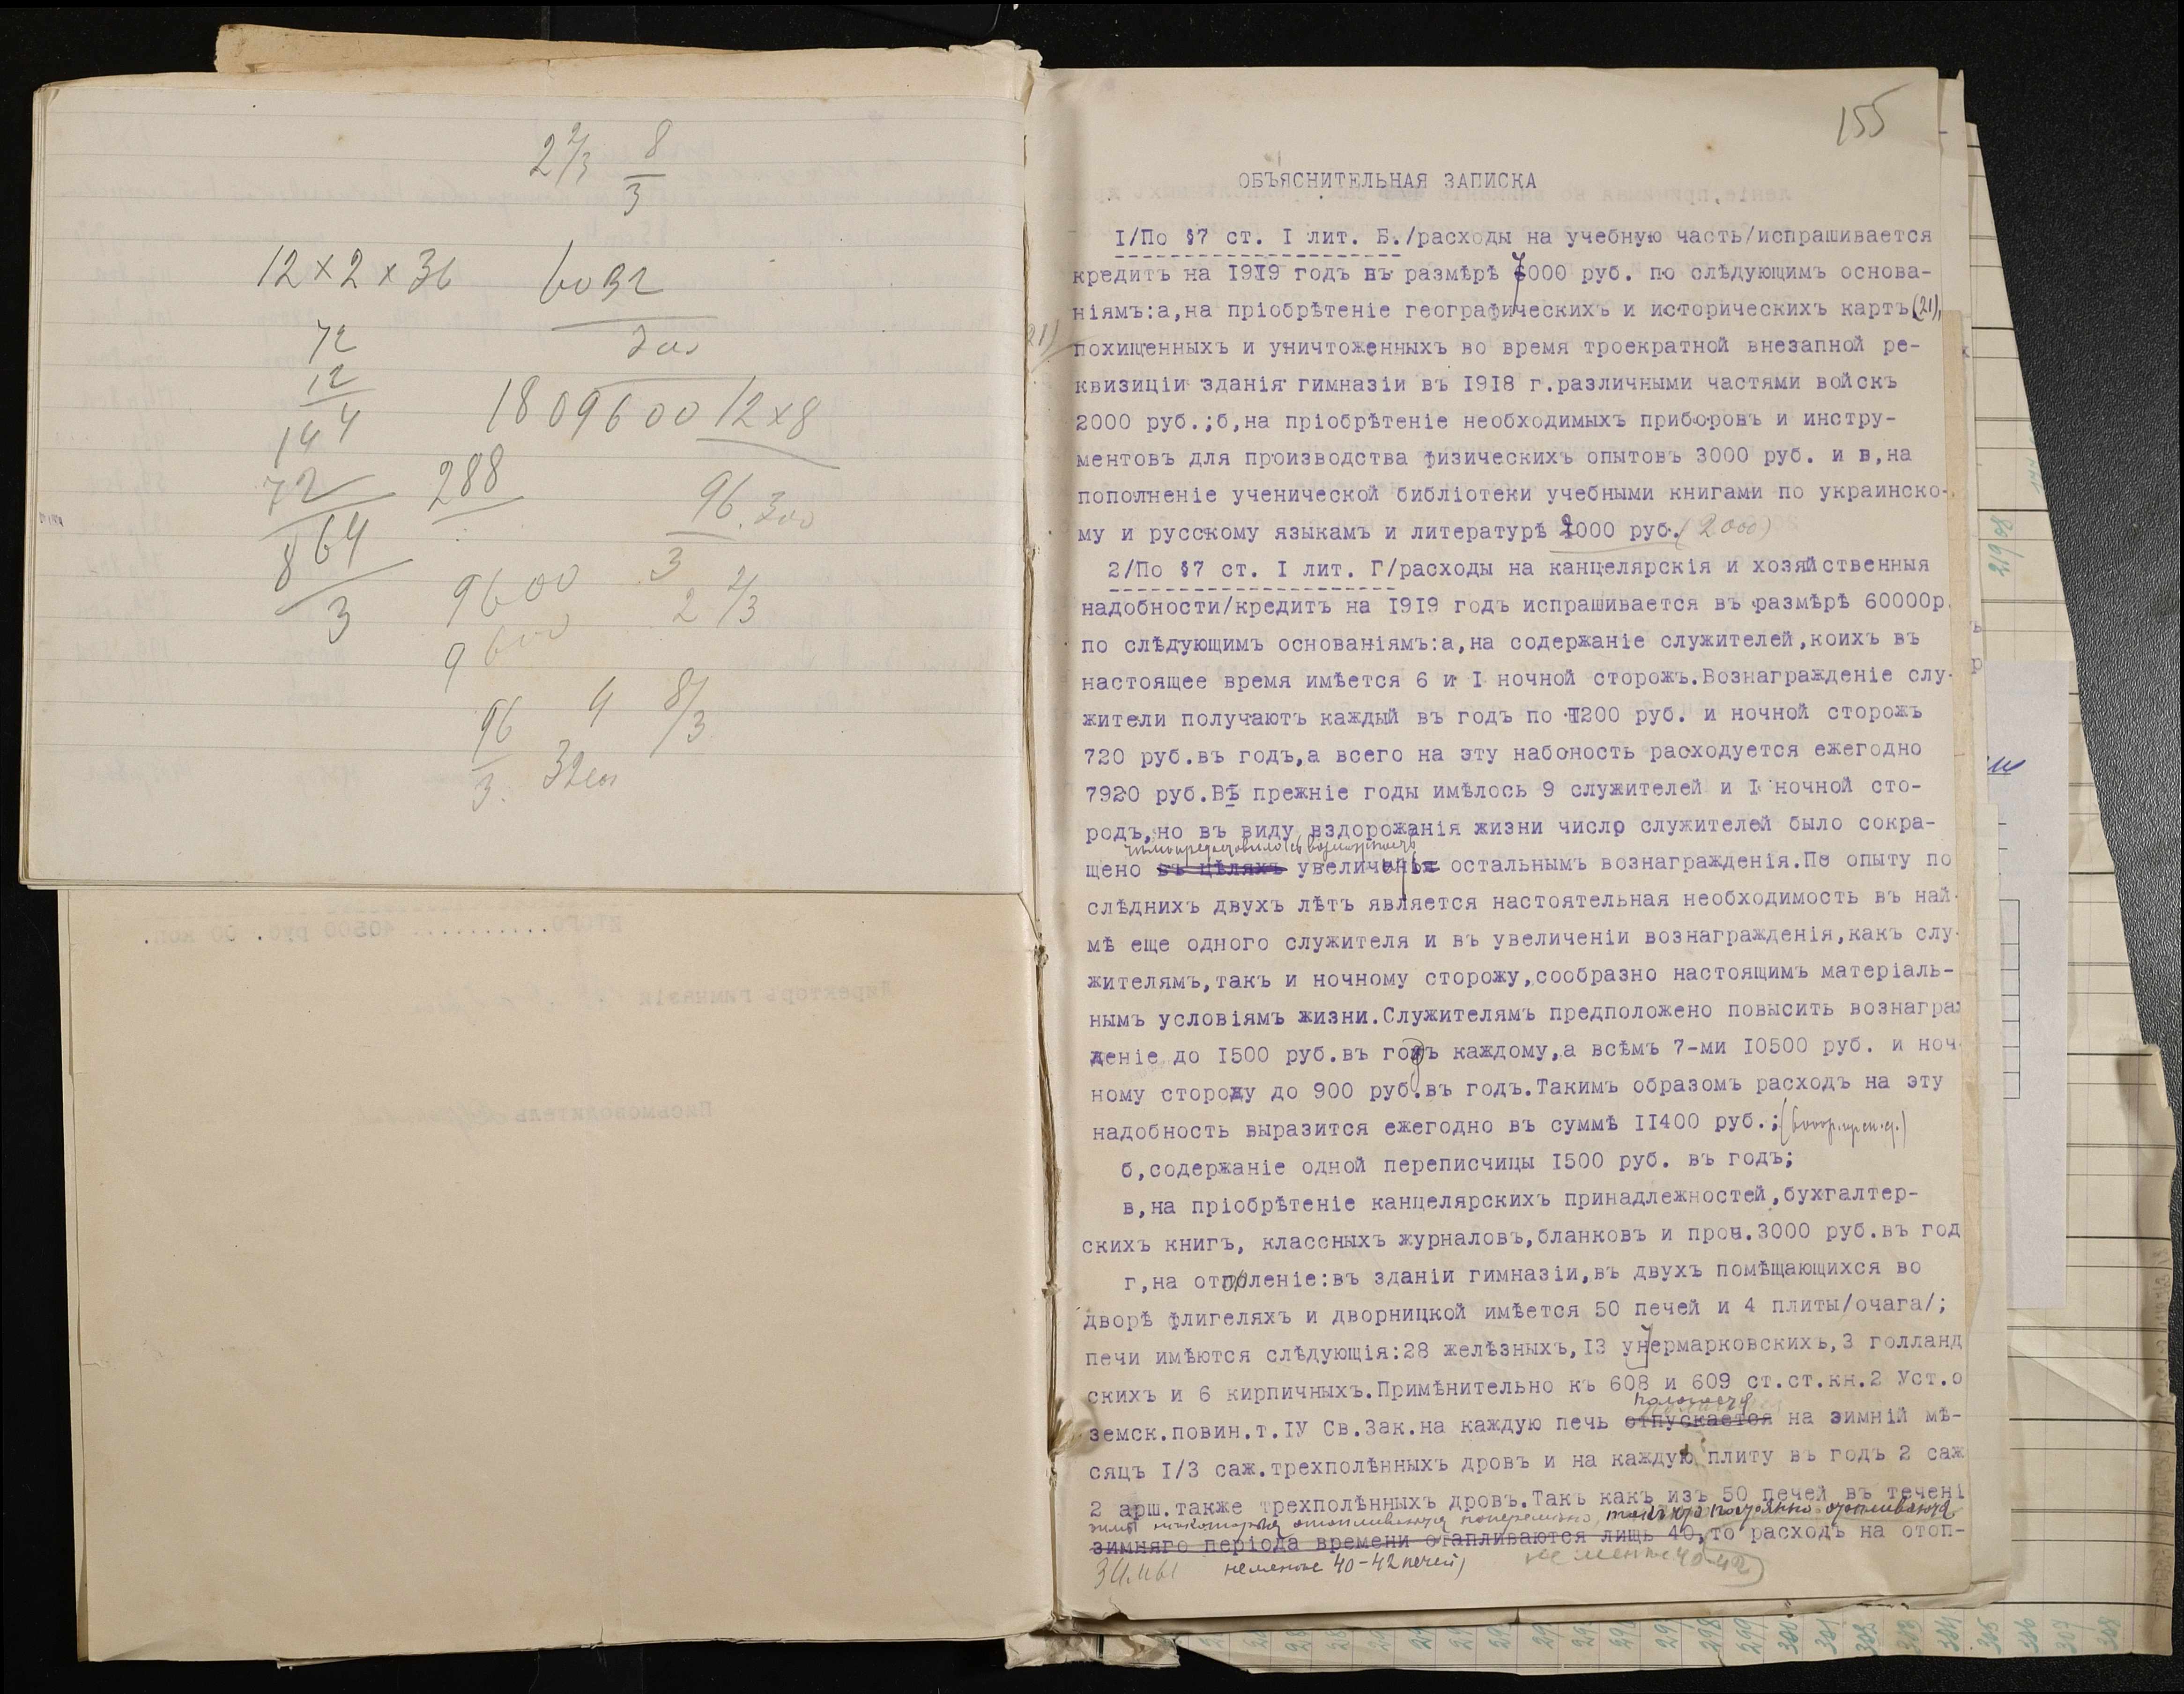 2 2/3 8/3
12 × 2 × 36
72
12
144
72
864
3
288
1809600 12×8
96. 300
3
2 2/3
9600
9600
96 8/3
3.
155
ОБЪЯСНИТЕЛЬНАЯ ЗАПИСКА
I/По §7 ст. I лит. Б./расходы на учебную часть/испрашивается
кредитъ на I9I9 годъ въ размѣрѣ 7000 руб. по слѣдующимъ основа-
ніямъ:а,на пріобрѣтеніе географическихъ и историческихъ картъ(21),
похищенныхъ и уничтоженныхъ во время троекратной внезапной ре-
квизиціи зданія гимназіи въ I9I8 г.различными частями войскъ
2000 руб.;б,на пріобрѣтеніе необходимыхъ приборовъ и инстру-
ментовъ для производства физическихъ опытовъ 3000 руб. и в,на
пополненіе ученической библіотеки учебными книгами по украинско-
му и русскому языкамъ и литературѣ 2000 руб.(2000)
2/По §7 ст. I лит. Г/расходы на канцелярскія и хозяйственныя
надобности/кредитъ на I9I9 годъ испрашивается въ размѣрѣ 60000р.
по слѣдующимъ основаніямъ:а,на содержаніе служителей,коихъ въ
настоящее время имѣется 6 и I ночной сторожъ.Вознагражденіе слу-
жители получаютъ каждый въ годъ по I200 руб. и ночной сторожъ
720 руб.въ годъ,а всего на эту набоность расходуется ежегодно
7920 руб.Въ прежніе годы имѣлось 9 служителей и I ночной сто-
родъ,но въ виду вздорожанія жизни число служителей было сокра-
щено въ цѣляхъ увеличенія остальнымъ вознагражденія.По опыту по
слѣднихъ двухъ лѣтъ является настоятельная необходимость въ най-
мѣ еще одного служителя и въ увеличеніи вознагражденія,какъ слу-
жителямъ,такъ и ночному сторожу,сообразно настоящимъ матеріаль-
нымъ условіямъ жизни.Служителямъ предположено повысить вознаграж
деніе до I500 руб.въ годъ каждому,а всѣмъ 7-ми I0500 руб. и ноч-
ному сторожу до 900 руб.въ годъ.Такимъ образомъ расходъ на эту
надобность выразится ежегодно въ суммѣ II400 руб.;
б,содержаніе одной переписчицы I500 руб. въ годъ;
в,на пріобрѣтеніе канцелярскихъ принадлежностей,бухгалтер-
скихъ книгъ, классныхъ журналовъ,бланковъ и проч.3000 руб.въ год
г,на отопленіе:въ зданіи гимназіи,въ двухъ помѣщающихся во
дворѣ флигеляхъ и дворницкой имѣется 50 печей и 4 плиты/очага/;
печи имѣются слѣдующія:28 желѣзныхъ,I3 унтермарковскихъ,3 голланд
скихъ и 6 кирпичныхъ.Примѣнительно къ 608 и 609 ст.ст.кн.2 Уст.о
полагается
земск.повин.т.IУ Св.Зак.на каждую печь отпускается на зимній мѣ-
сяцъ I/3 саж.трехполѣнныхъ дровъ и на каждую плиту въ годъ 2 саж
2 арш.также трехполѣнныхъ дровъ.Такъ какъ изъ 50 печей въ течені
зимы нѣкоторыя отопливаются поперемѣнно, такъ что постоянно отопливаются
зимняго періода времени отапливаются лищь 40,то расходъ на отоп-
зимы не менѣе 40-42 печей, не менѣе 40-42